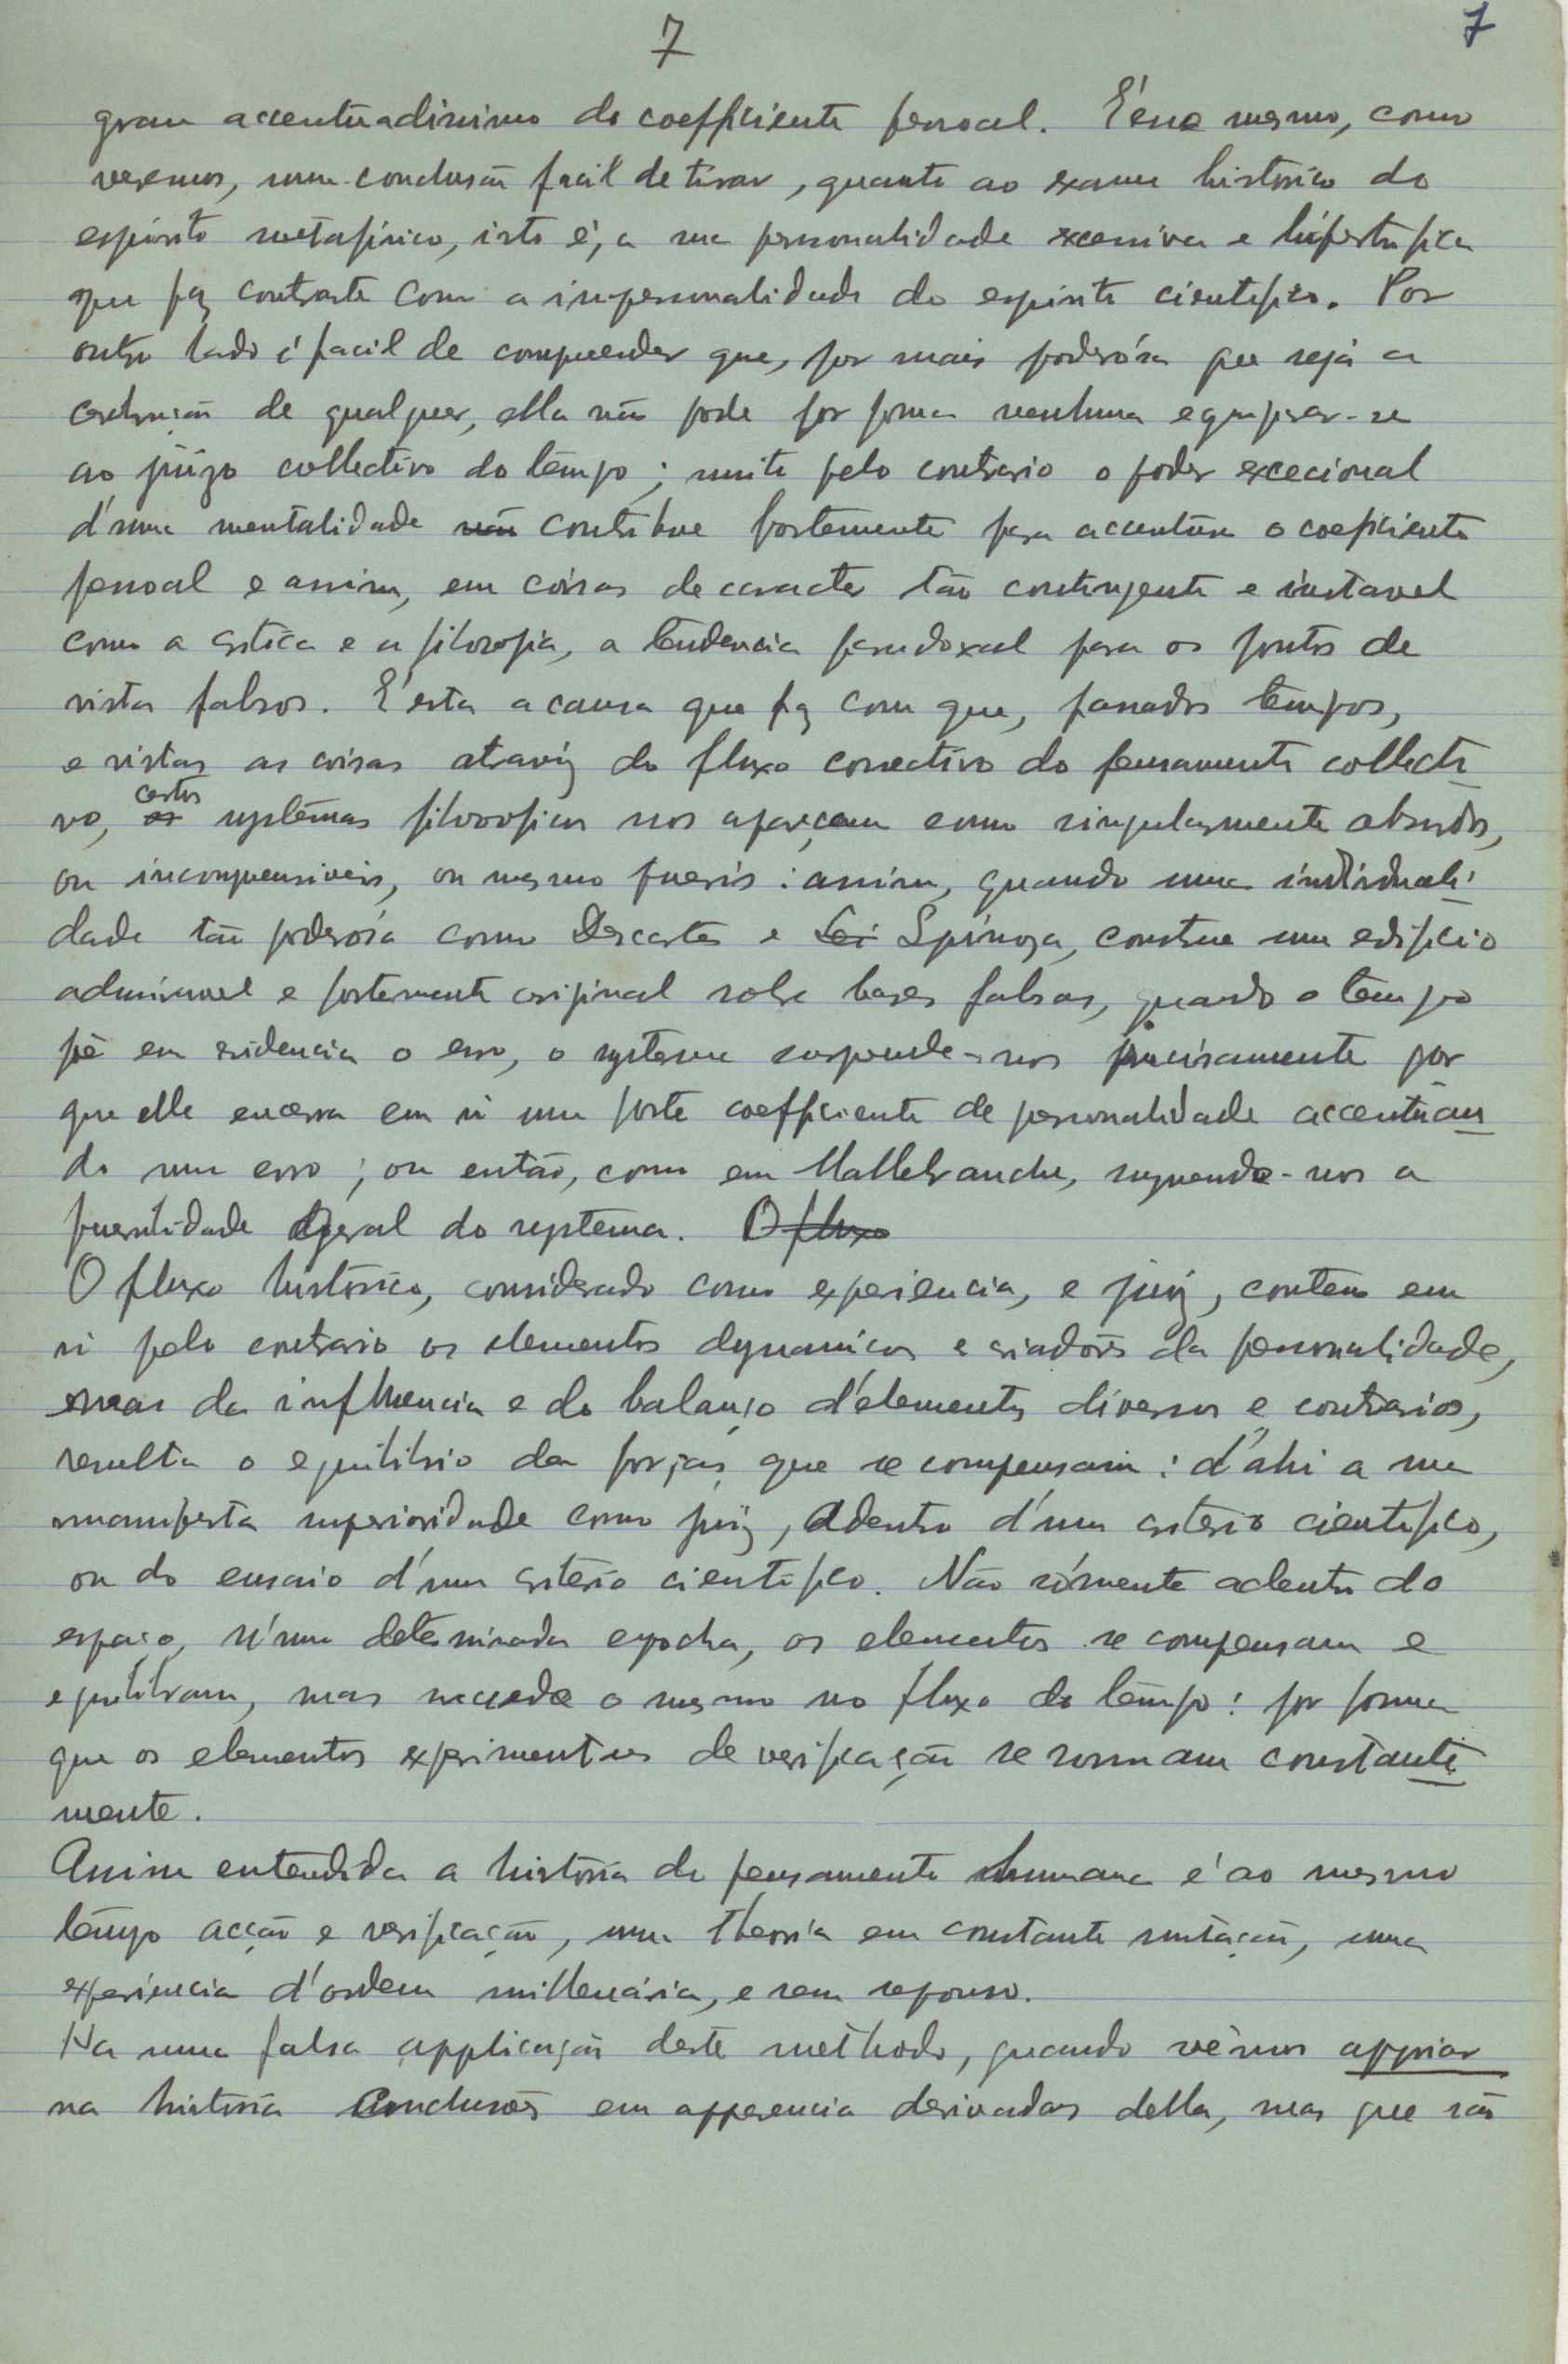 7
7
grau accentuadissimo do coefficiente pessoal. É esse mesmo, como
veremos, uma conclusão facil de tirar, quanto ao exame histórico do
espírito metafísico, isto é, a sua personalidade excessiva e hípertrofica
que faz contraste com a impersonalidade do espirito cientifico. Por
outro lado é facil de comprender que, por mais poderósa que seja a
de qualquer, ella não pode por forma nenhuma equiparar-se
ao juizo collectivo do tempo; muito pelo contrario o poder excecional
d'uma mentalidade não contribue fortemente para accentuar o coeficiente
pessoal e assim, em coisas de caracter tão contingente e instavel
como a critica e a filozofia, a tendencia paradoxal para os pontos de
vista falsos. É esta a causa que faz com que, passados tempos,
e vistas as coisas atravéz do fluxo corrective do pensamento collecti
vo, os certos systémas filozoficos nos apareçam como singularmente absurdos,
ou incomprensiveis, ou mesmo pueris: assim, quando uma individuali
dade tão poderósa como Descartes e Lei Spinoza, construe um edificio
admiravel e fortemente original sobre bases falsas, quando o tempo
põe em evidencia o erro, o systema surpende-nos precisamente por
que elle encerra em si um forte coefficiente de personalidade accentuan
do um erro; ou então, como em Mallebranche, surprende-nos a
puerilidade geral do systema. O fluxo
O fluxo histórico, considerado como experiencia, e juiz, contem em
si pelo contrario os elementos dynamicos e criadôres da personalidade,
mas da influencia e do balanço d'elementos diversos e contrarios,
resulta o equilibrio das forças que se compensam: d'ahi a sua
manifesta superioridade como juiz, adentro d'um criterio cientifico,
ou do ensaio d'um criterio cientifico. Não sómente adentro do
espaço, n'uma determinada epocha, os elementos se compensam e
equilibram, mas sucede o mesmo no fluxo do tempo: por forma
que os elementos experimentaes de verificação se sommam constante
mente.
Assim entendida a história do pensamento humano é ao mesmo
tempo acção e verificação, uma theoria em constante mutação, uma
experiencia d'ordem millenária, e sem repouso.
Ha uma falsa applicação deste méthodo, quando vêmos appoiar
na história conclusões em apparencia derivadas della, mas que são